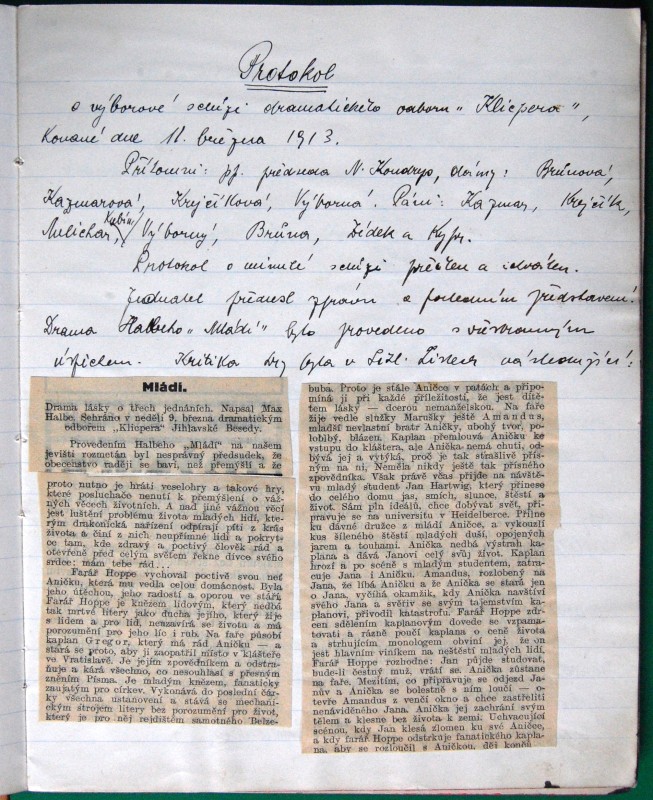 Protokol
o výborové schůzi dramatického odboru „Klicpera",
konané dne 11. března 1913.
Přítomni: pp. předseda N. Kondrys, dámy: Brůnová,
Kazmarová, Krejčíková, Výborná. Páni: Kazmar, Krejčík,
Melichar, Kubín, Výborný, Brůna, Žídek a Kypr.
Protokol o minulé schůzi přečten a schválen.
Jednatel přednesl zprávu o posledním představení.
Drama Halbeho „Mládí" bylo provedeno s všestranným
úspěchem. Kritika byla v Jihl. Listech následující:
Mládí.
Drama lásky o třech jednáních. Napsal Max
Halbe. Sehráno v neděli 9. března dramatickým
odborem „Klicpera" Jihlavské Besedy.
Provedením Halbeho „Mládí" na našem
jevišti rozmetán byl nesprávný předsudek, že
obecenstvo raději se baví, než přemýšlí a že
proto nutno je hráti veselohry a takové hry,
které posluchače nenutí k přemýšlení o váž-
ných věcech životních. A nad jiné vážnou věcí
jest luštění problému života mladých lidí, kte-
rým drakonická nařízení odpírají píti z krás
života a činí z nich neupřímné lidi a pokryt-
ce tam, kde zdravý a poctivý člověk rád a
otevřeně před celým světem řekne dívce svého
srdce: mám tebe rád...
Farář Hoppe vychoval poctivě svou neť
Aničku, která mu vedla celou domácnost. Byla
jeho útěchou, jeho radostí a oporou ve stáří.
Farář Hoppe je knězem lidovým, který nedbá
tak mrtvé litery jako ducha jejího, který žije
s lidem a pro lid, neuzavírá se života a má
porozumění pro jeho líc i rub. Na faře působí
kaplan Gregor, který má rád Aničku — a
stará se proto, aby jí zaopatřil místo v klášteře
ve Vratislavě. Je jejím zpovědníkem a odstra-
ňuje a kárá všechno, co nesouhlasí s přesným
zněním Písma. Je mladým knězem, fanaticky
zaujatým pro církev. Vykonává do poslední čár-
ky všechna ustanovení a stává se mechani-
ckým strojem litery bez porozumění pro život,
který je pro něj rejdištěm samotného Belze-
buba. Proto je stále Aničce v patách a připo-
míná jí při každé příležitosti, že jest dítě-
tem lásky — dcerou nemanželskou. Na faře
žije vedle služky Marušky ještě Amandus,
mladší nevlastní bratr Aničky, ubohý tvor, po-
loblbý, blázen. Kaplan přemlouvá Aničku ke
vstupu do kláštera, ale Anička nemá chuti, od-
bývá jej a vytýká, proč je tak strašlivě přís-
ným na ni. Neměla nikdy ještě tak přísného
zpovědníka. Však právě včas přijde na návště-
vu mladý student Jan Hartwig, který přinese
do celého domu jas, smích, slunce, štěstí a
život. Sám pln ideálů, chce dobývat svět, při-
pravuje se na universitu v Heidelberce. Přilne
ku dávné družce z mládí Aničce, a vykouzlí
kus šíleného štěstí mladých duší, opojených
jarem a touhami. Anička nedbá výstrah ka-
planových a dává Janovi celý svůj život. Kaplan
hrozí a po scéně s mladým studentem, zatra-
cuje Jana i Aničku. Amandus, rozlobený na
Jana, že líbá Aničku a že Anička se stará jen
o Jana, vyčíhá okamžik, kdy Anička navštíví
svého Jana a svěřiv se svým tajemstvím ka-
planovi, přivodí katastrofu. Farář Hoppe zdr-
cen sdělením kaplanovým dovede se vzpama-
tovati a rázně poučí kaplana o ceně života
a strhujícím monologem obviní jej, že on
jest hlavním viníkem na neštěstí mladých lidí.
Farář Hoppe rozhodne: Jan půjde studovat,
bude-li čestný muž, vrátí se. Anička zůstane
na faře. Mezitím, co připravuje se odjezd Ja-
nův a Anička se bolestně s ním loučí — o-
tevře Amandus z venčí okno a chce zastřeliti
nenáviděného Jana, Anička jej zachrání svým
tělem a klesne bez života k zemi. Uchvacující
scénou, kdy Jan klesá zlomen ku své Aničce,
a kdy farář Hoppe odstrkuje fanatického kapla-
na, aby se rozloučil s Aničkou, děj končí